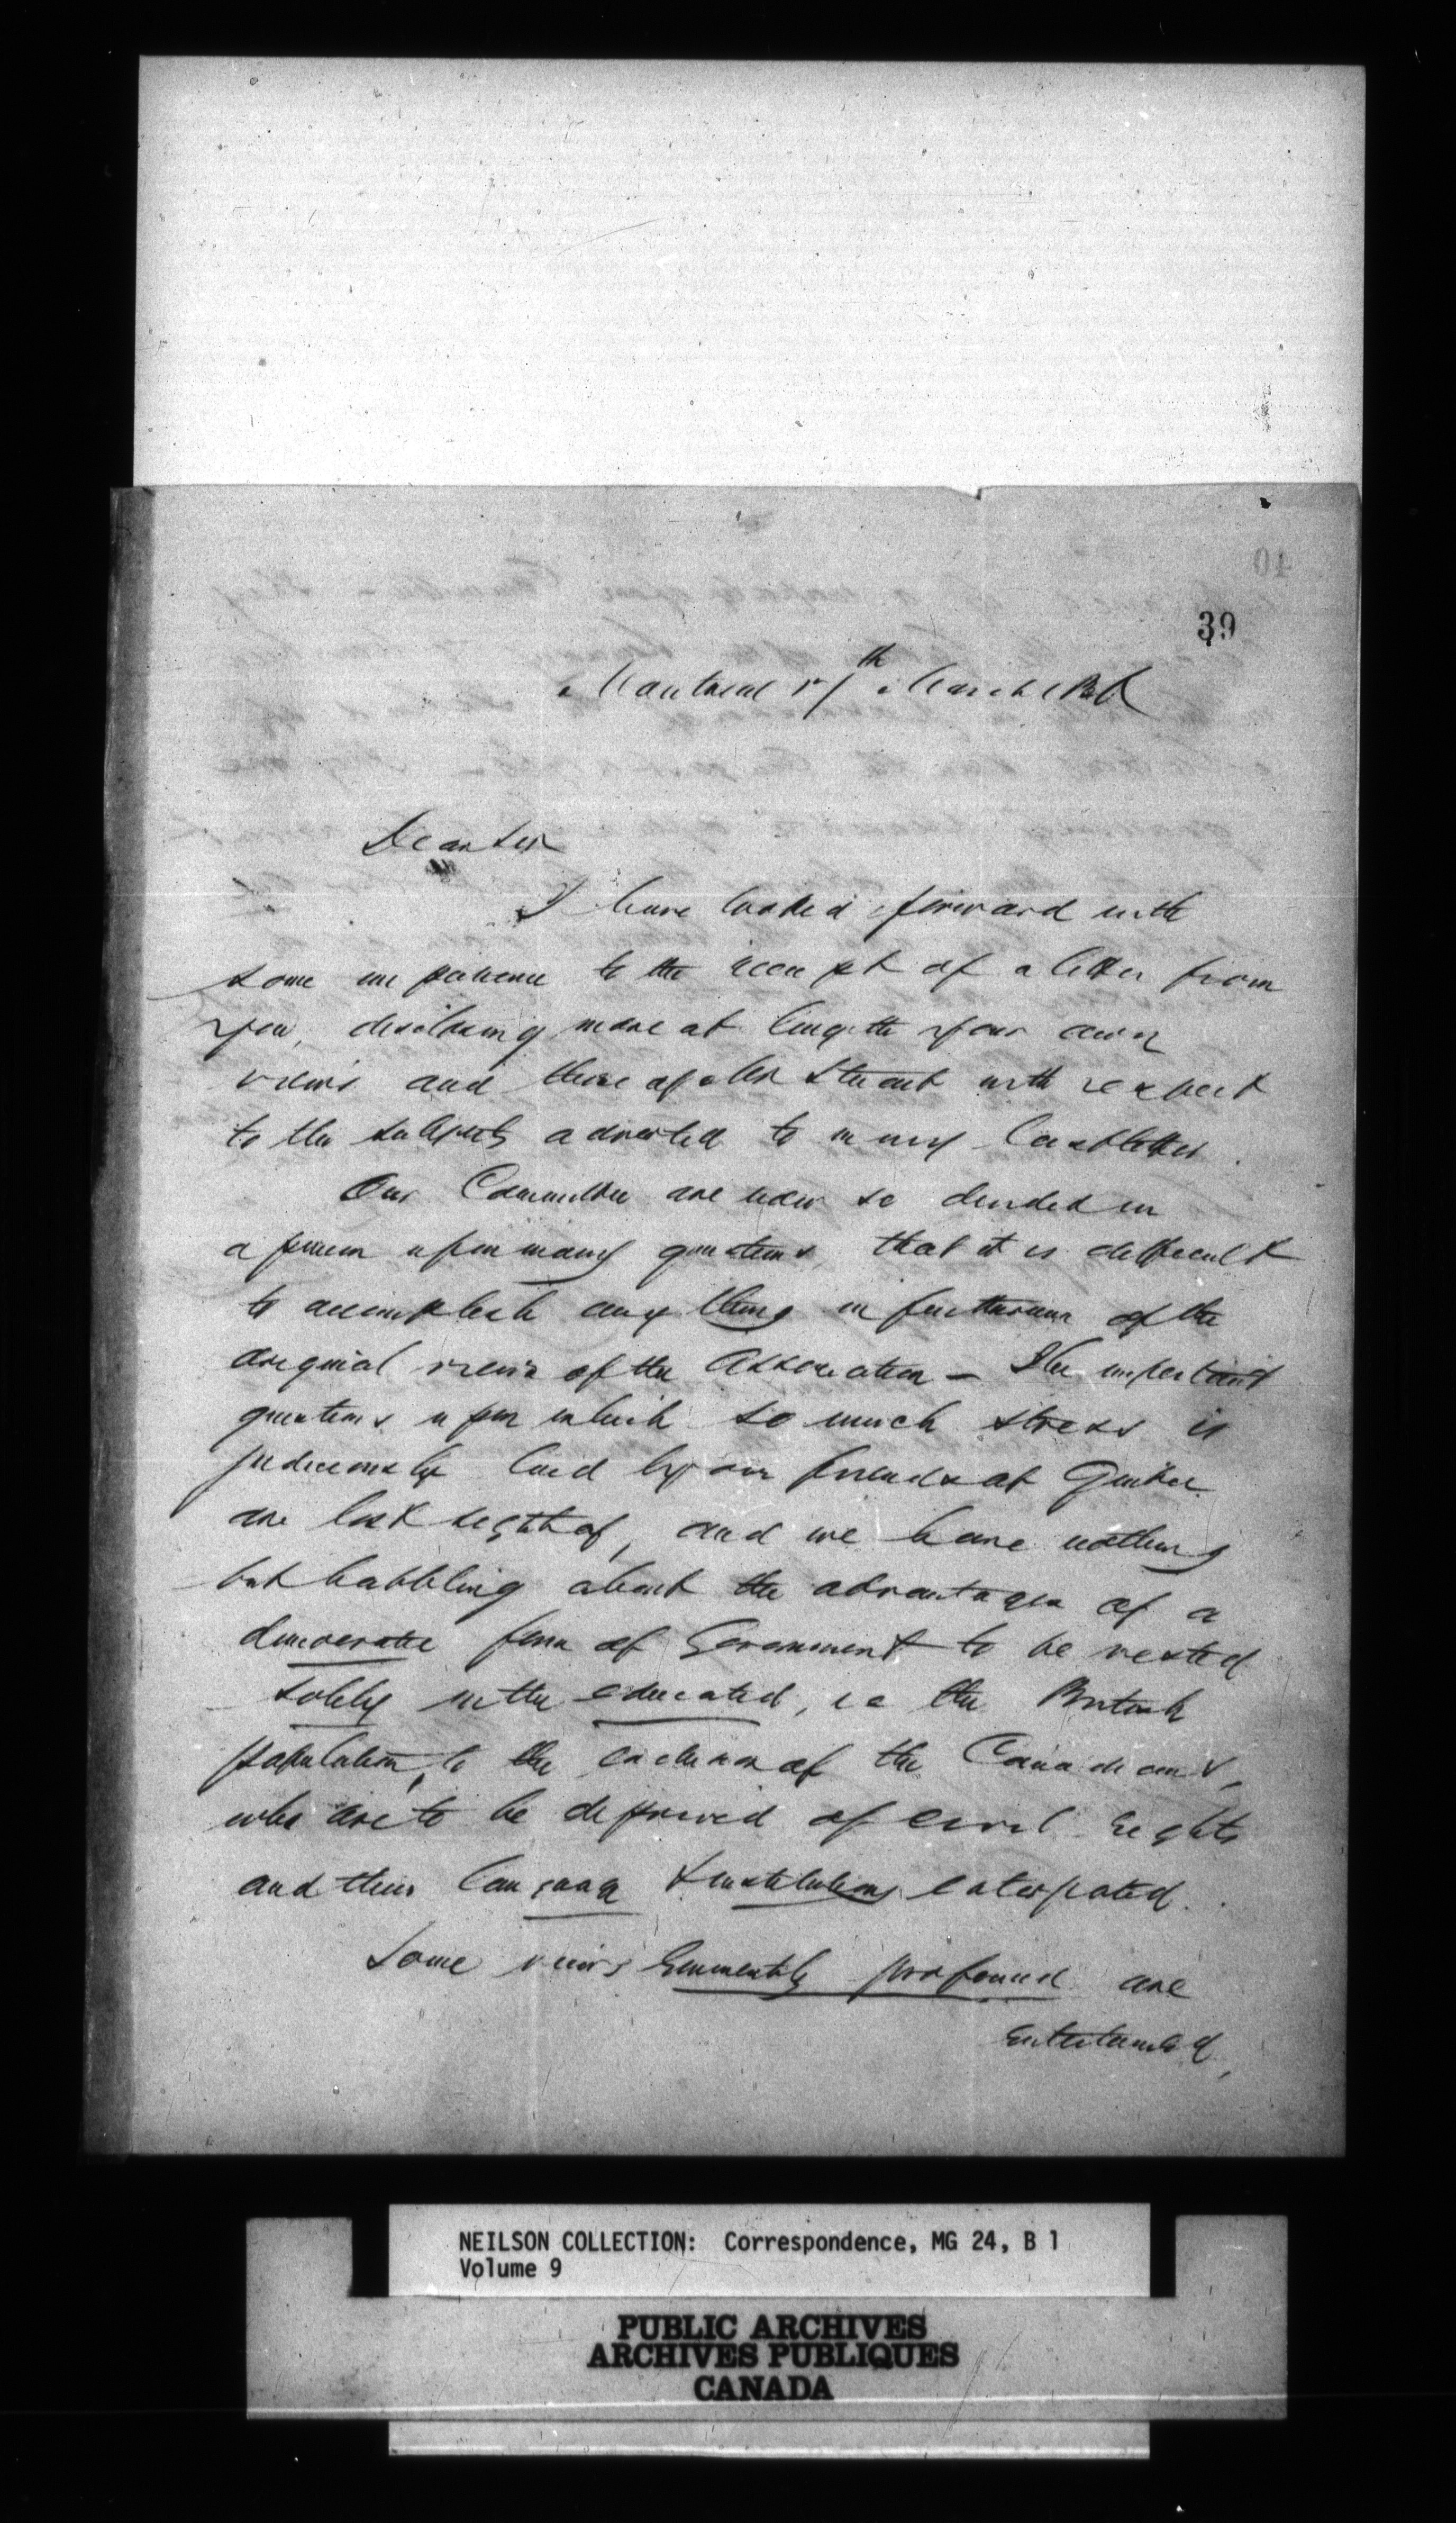 39
Montreal 17th March
Dear Sir
I have looked forward with
some impatience to the receipt of a letter from
you, disclosing more at length your own
views and those of Mr Stuart with respect
to the subjects adverted to in my last letter.
Our Committee are now so divided in
opinion upon many questions, that it is difficult
to accomplish any thing in furtherance of the
original views of the Association — The important
questions upon which so much stress is
judiciously laid by our friends at Quebec
are lost sight of, and we have nothing
but babbling about the advantages of a
democratic form of Government to be vested
solely in the educated, i e the British
population, to the exclusion of the Canadians,
who are to be deprived of civil rights
and their language & institutions extirpated.
Some views eminently profound are
entertained,
NEILSON COLLECTION: Correspondence, MG 24, B 1
Volume 9
PUBLIC ARCHIVES
ARCHIVES PUBLIQUES
CANADA